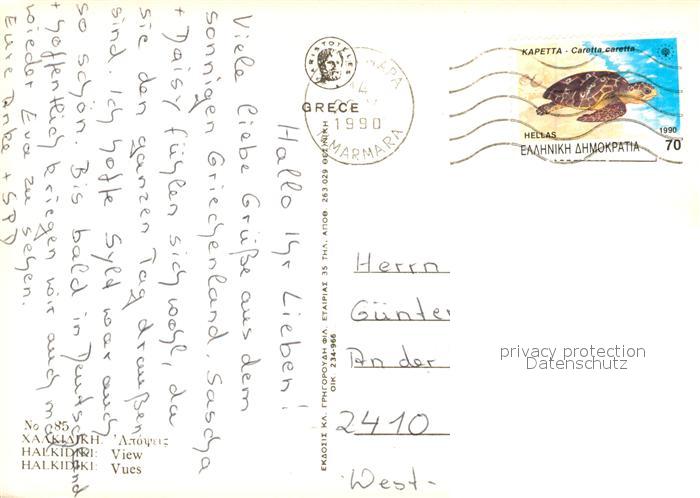 Hallo Ihr Lieben!
Viele liebe Grüße aus dem
sonnigen Griechenland. Sascha
+ Daisy fühlen sich wohl, da
sie den ganzen Tag draußen
sind. Ich hoffe Sylt war auch
so schön. Bis bald in Deutschland
+ hoffentlich kriegen wir auch mal
wieder Eva zu sehen.
Eure Anke +
No 85
ΧΑΛΚΙΔΙΚΗ: Ἀπόψεις
HALKIDIKI: View
HALKIDIKI: Vues
ΕΚΔΟΣΙΣ ΚΛ. ΓΡΗΓΟΡΟΥΔΗ ΦΙΛ. ΕΤΑΙΡΙΑΣ 35 ΤΗΛ. ΑΠΟΘ. 263.029 ΘΕΣ/ΝΙΚΗ
ΟΙΚ. 234-966
GRECE
1990
N. MARMARA
KAPETTA - Caretta caretta
HELLAS
1990
ΕΛΛΗΝΙΚΗ ΔΗΜΟΚΡΑΤΙΑ
70
Herrn
Günter
An der
2410
West-
privacy protection
Datenschutz